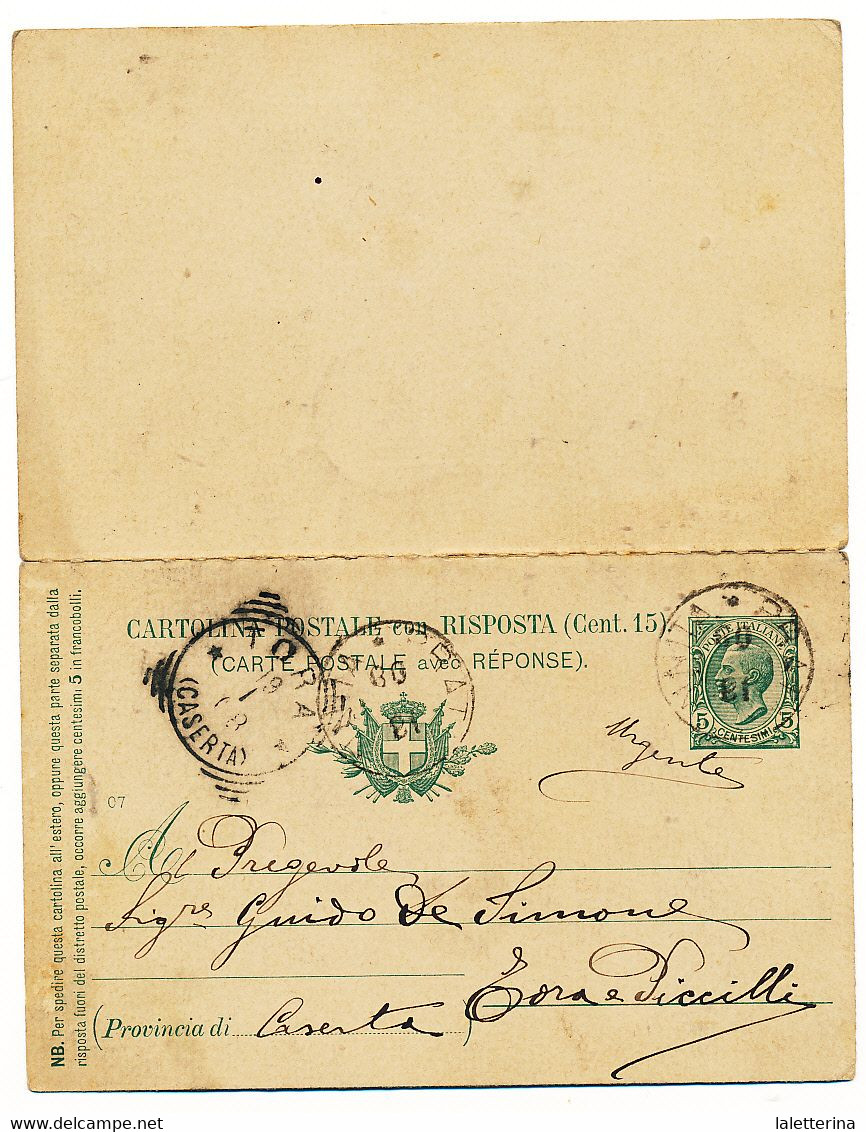 CARTOLINA POSTALE con RISPOSTA (Cent. 15)
(CARTE POSTALE avec RÉPONSE).
POSTE ITALIANE
5 CENTESIMI 5
TORA
(CASERTA)
Urgente
07
Al Pregevole
Sigre Guido De Simone
Tora e Piccilli
(Provincia di Caserta)
NB. Per spedire questa cartolina all' estero, oppure questa parte separata dalla
risposta fuori del distretto postale, occorre aggiungere centesimi 5 in francobolli.
delcampe.net
laletterina